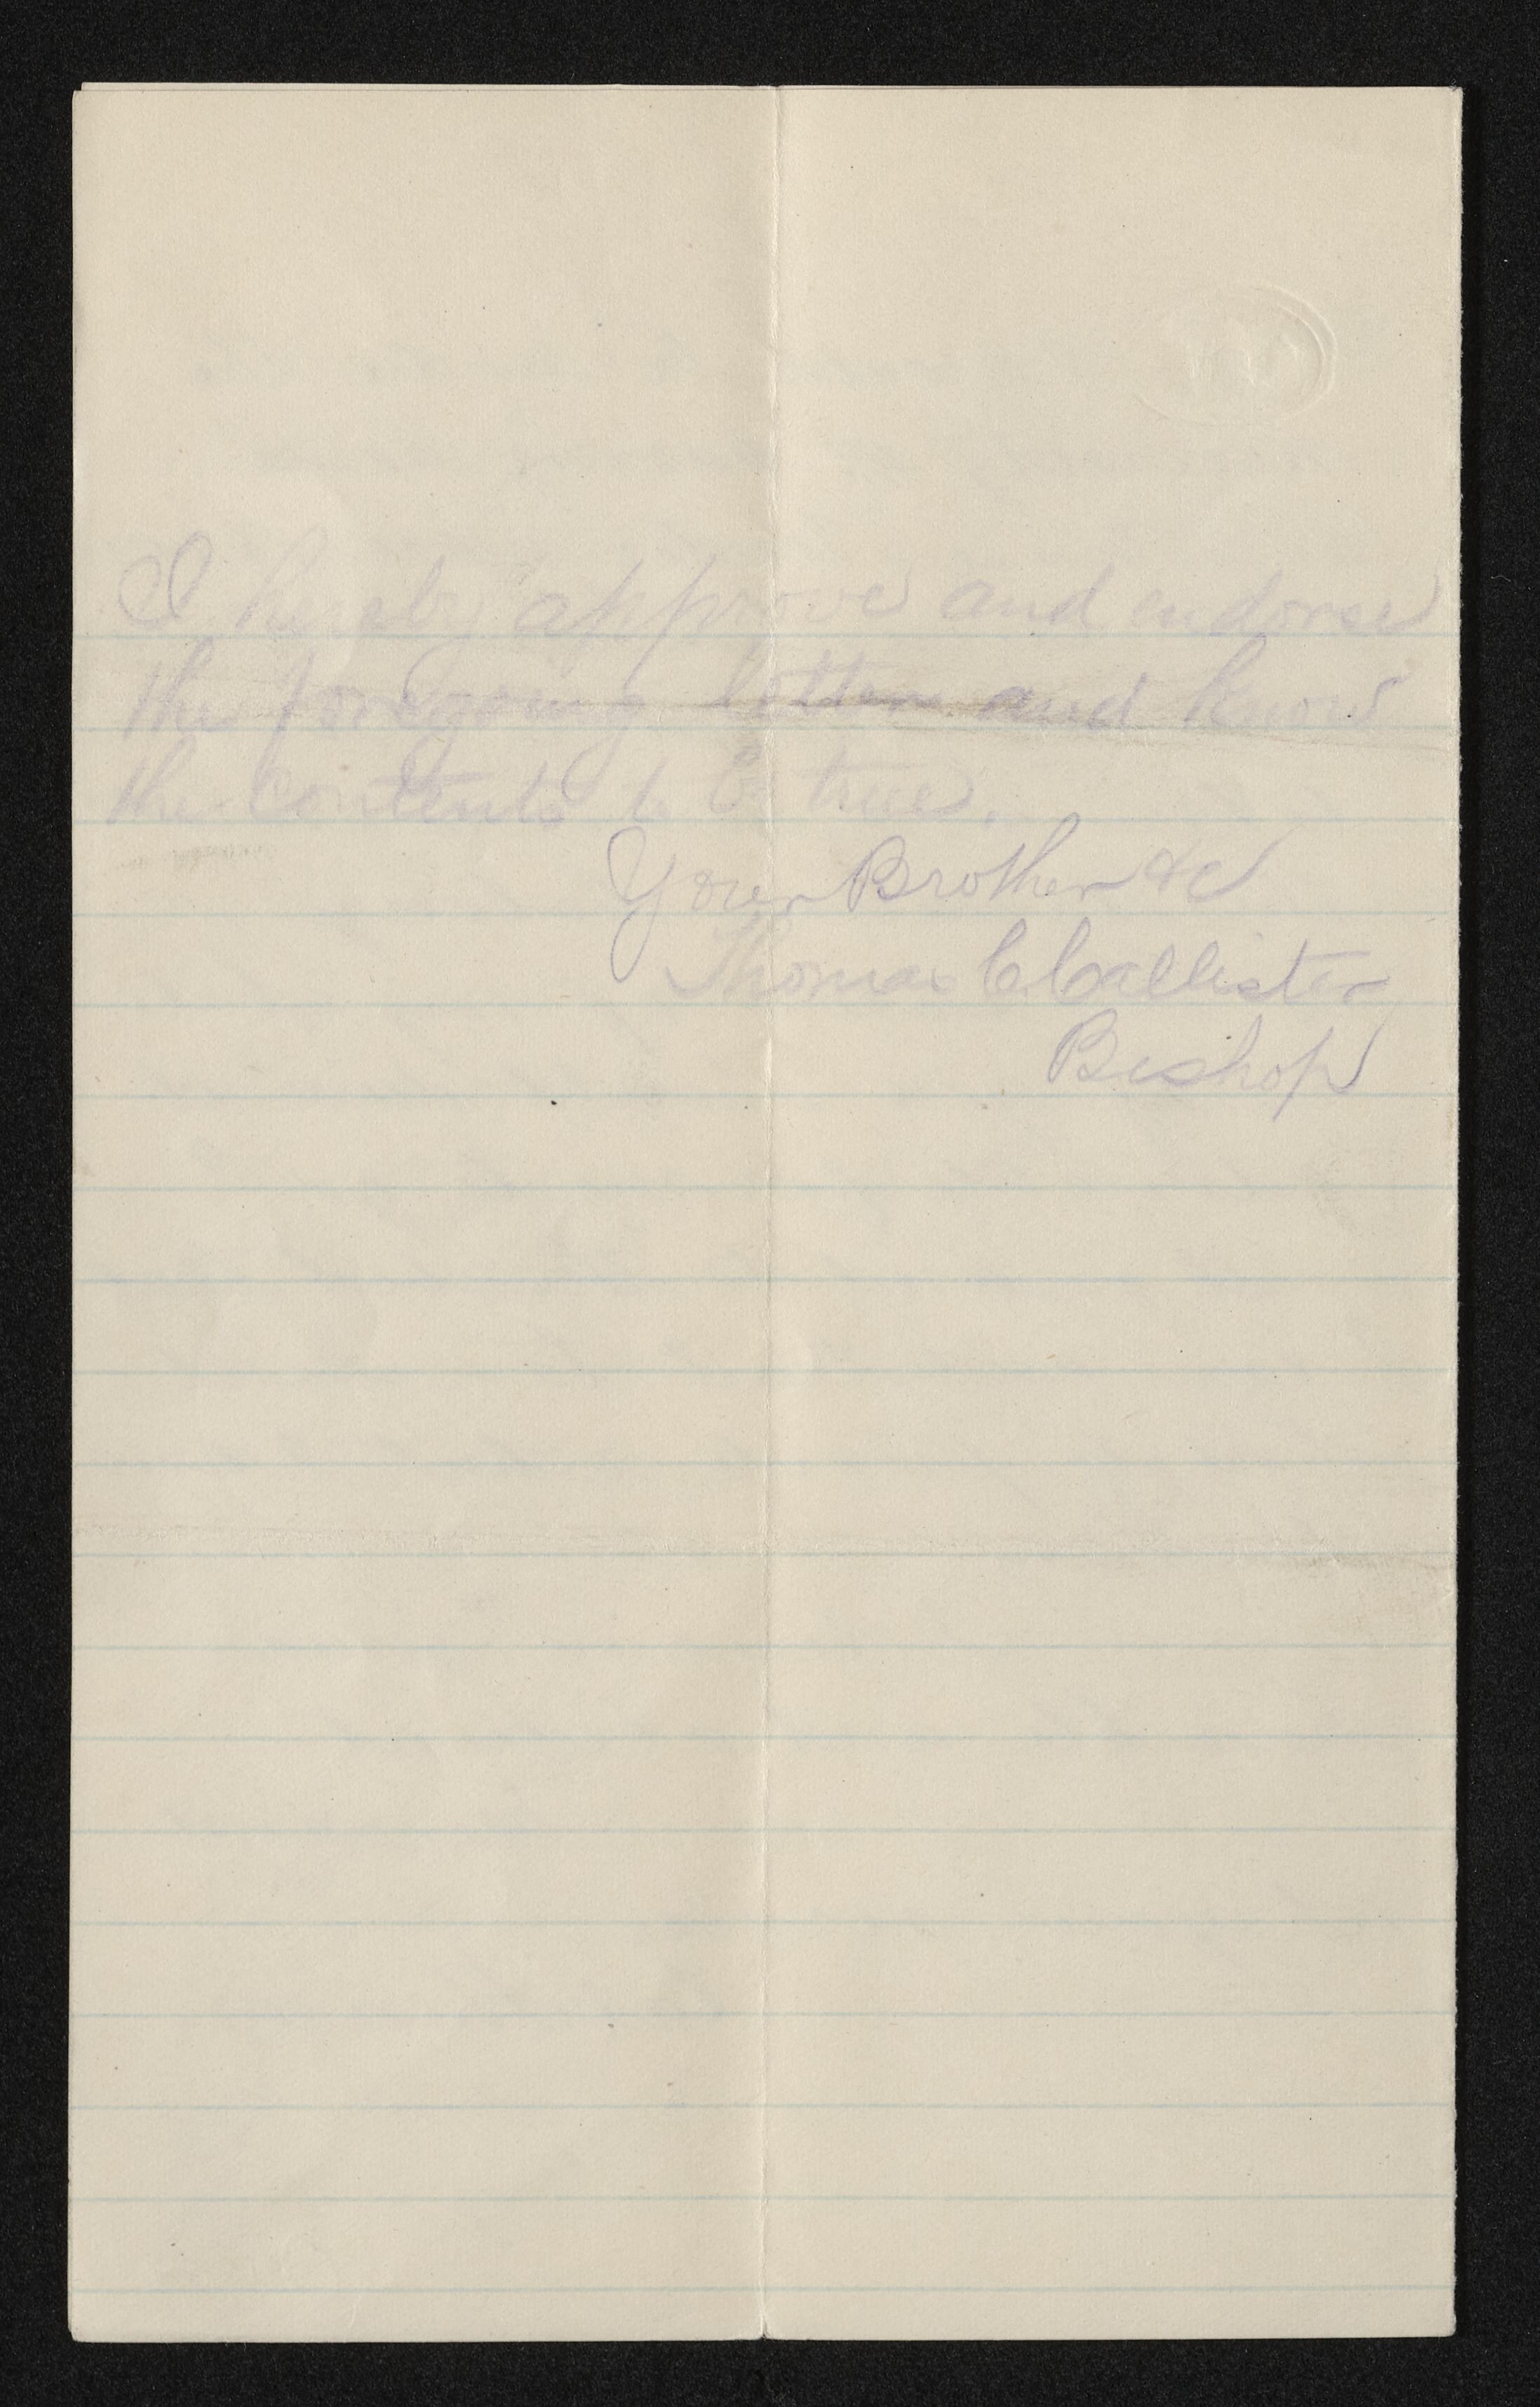 I hereby approve and endorse
the foregoing letter and know
the contents to be true.
Your Brother &c
Thomas C Callister
Bishop